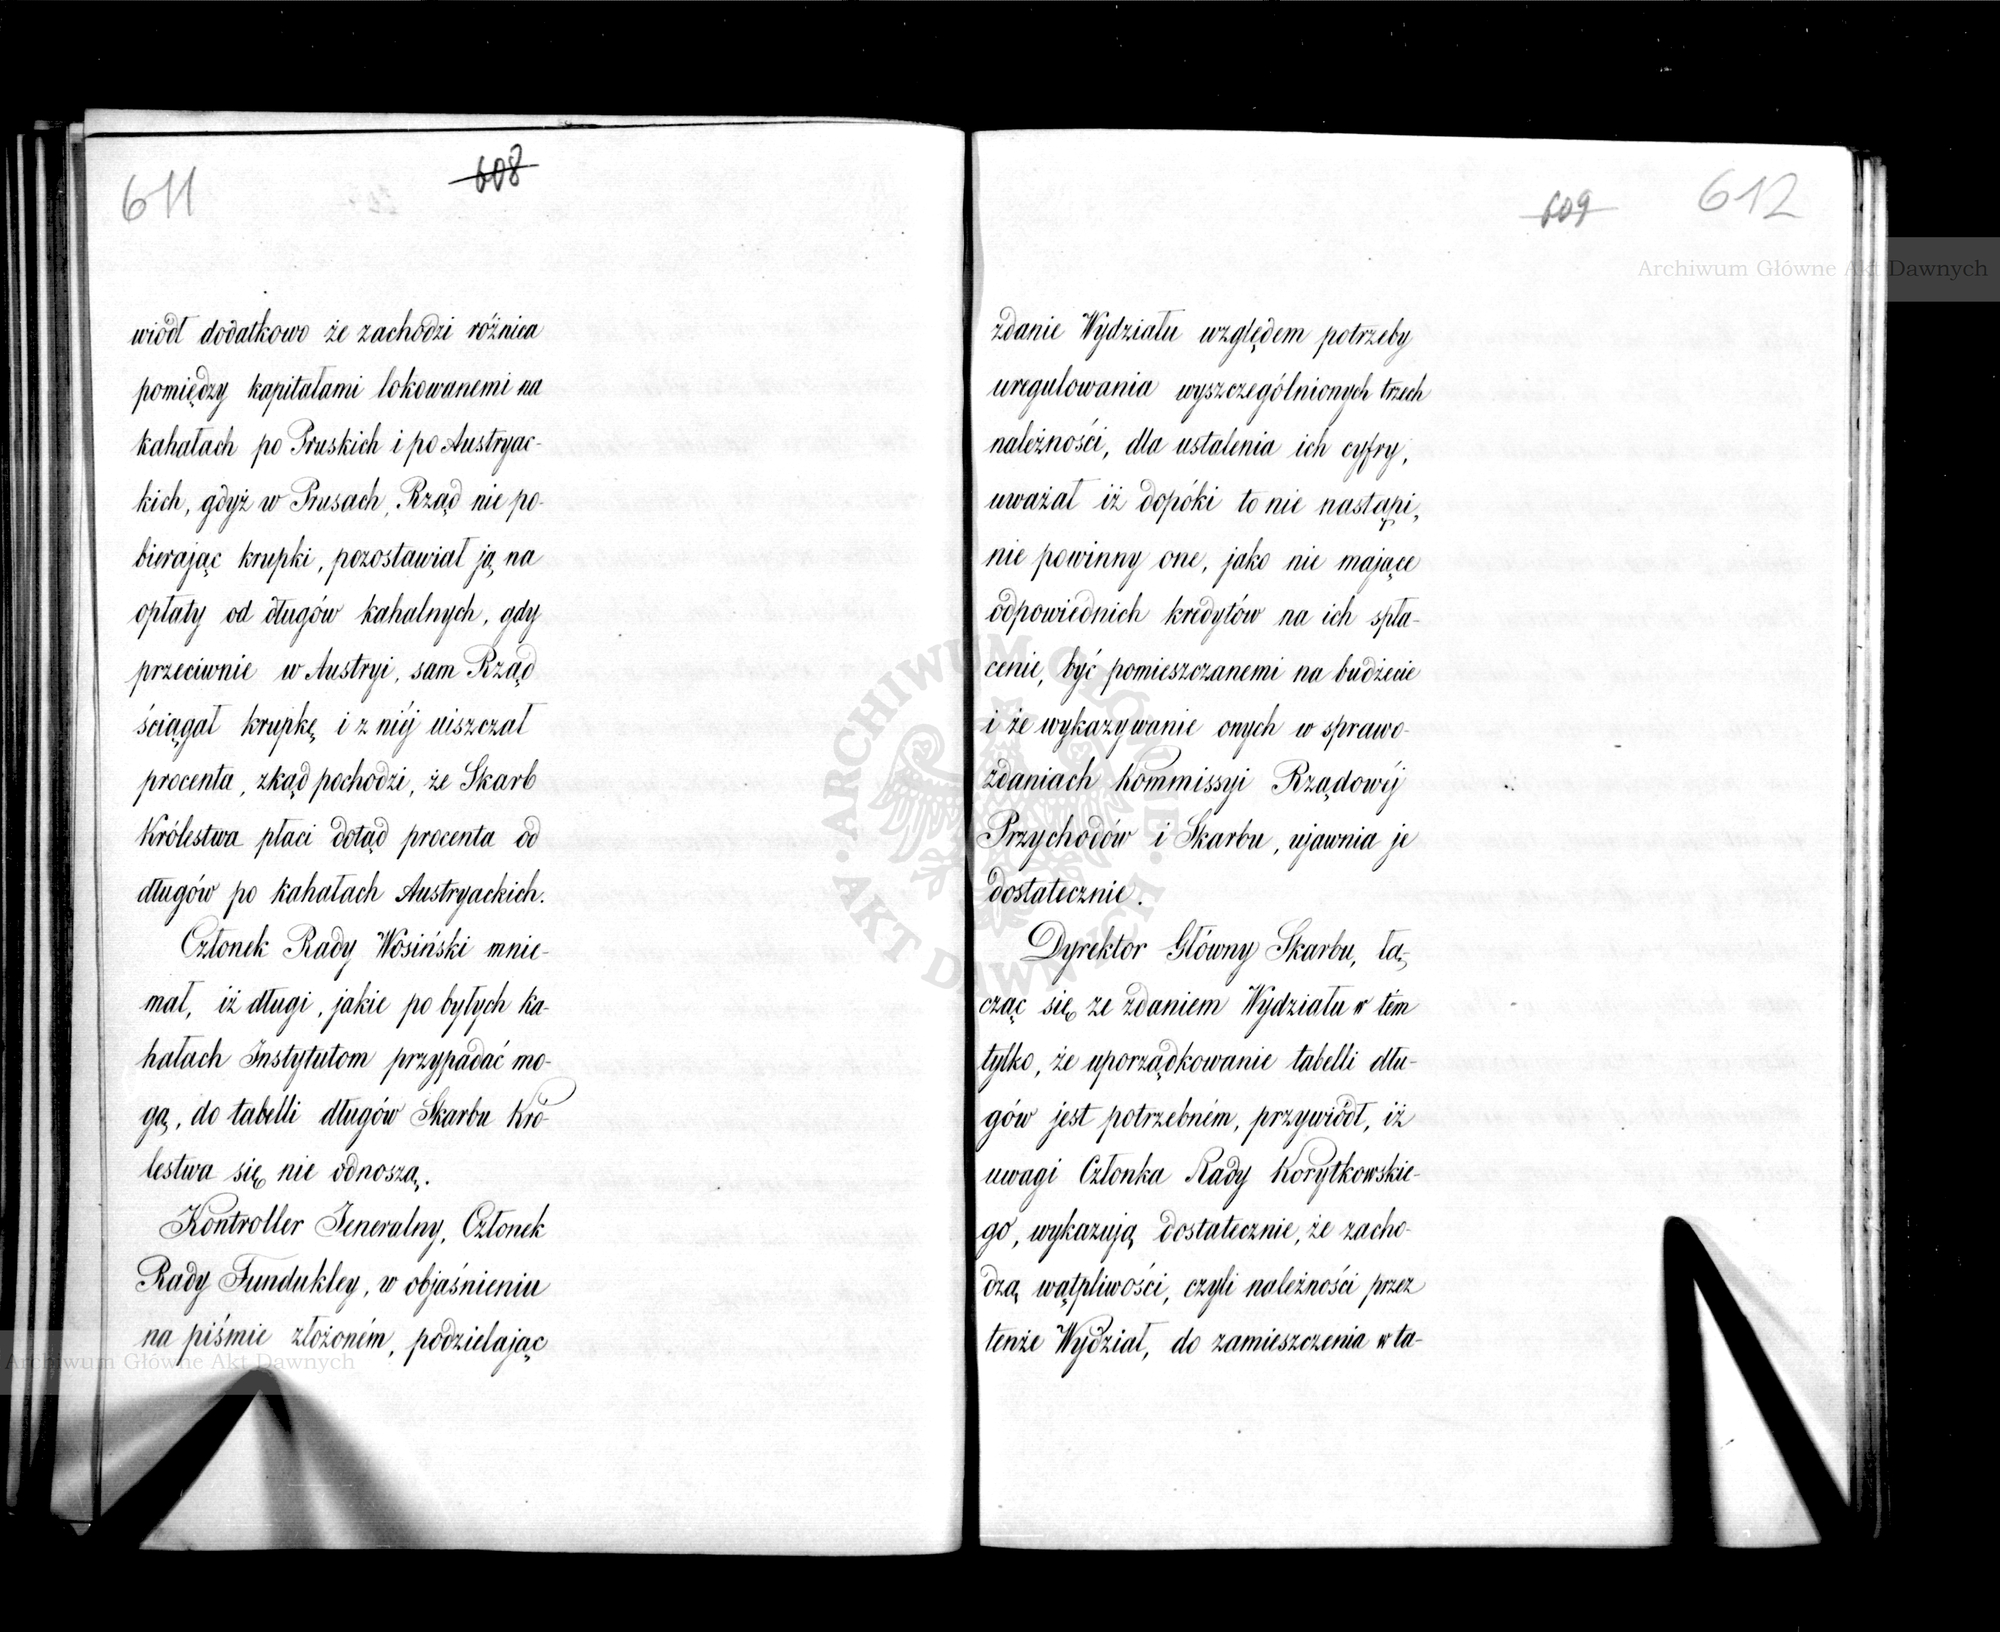 611
608
wiódł dodatkowo że zachodzi różnica
pomiędzy kapitałami lokowanemi na
kahałach po Pruskich i po Austryac-
kich, gdyż w Prusach, Rząd nie po-
bierając krupki, pozostawiał ją na
opłaty od długów kahalnych, gdy
przeciwnie w Austryi, sam Rząd
ściągał krupkę i z niéj uiszczał
procenta, zkąd pochodzi, że Skarb
Królestwa płaci dotąd procenta od
długów po kahałach Austryackich.
Członek Rady Wosiński mnie-
mał, iż długi, jakie po byłych ka-
hałach Instytutom przypadać mo-
gą, do tabelli długów Skarbu Kró-
lestwa się nie odnoszą.
Kontroller Jeneralny, Członek
Rady Fundukley, w objaśnieniu
na piśmie złożoném, podzielając
609
612
zdanie Wydziału względem potrzeby
uregulowania wyszczególnionych trzech
należności, dla ustalenia ich cyfry,
uważał iż dopóki to nie nastąpi,
nie powinny one, jako nie mające
odpowiednich kredytów na ich spła-
cenie, być pomieszczanemi na budżecie
i że wykazywanie onych w sprawo-
zdaniach Kommissyi Rządowéj
Przychodów i Skarbu, ujawnia je
dostatecznie.
Dyrektor Główny Skarbu, łą-
cząc się ze zdaniem Wydziału w tém
tylko, że uporządkowanie tabelli dłu-
gów jest potrzebném, przywiódł, iż
uwagi Członka Rady Korytkowskie-
go, wykazują dostatecznie, że zacho-
dzą wątpliwości, czyli należności przez
tenże Wydział, do zamieszczenia w ta-
Archiwum Główne Akt Dawnych
ARCHIWUM GŁÓWNE AKT DAWNYCH
Archiwum Główne Akt Dawnych